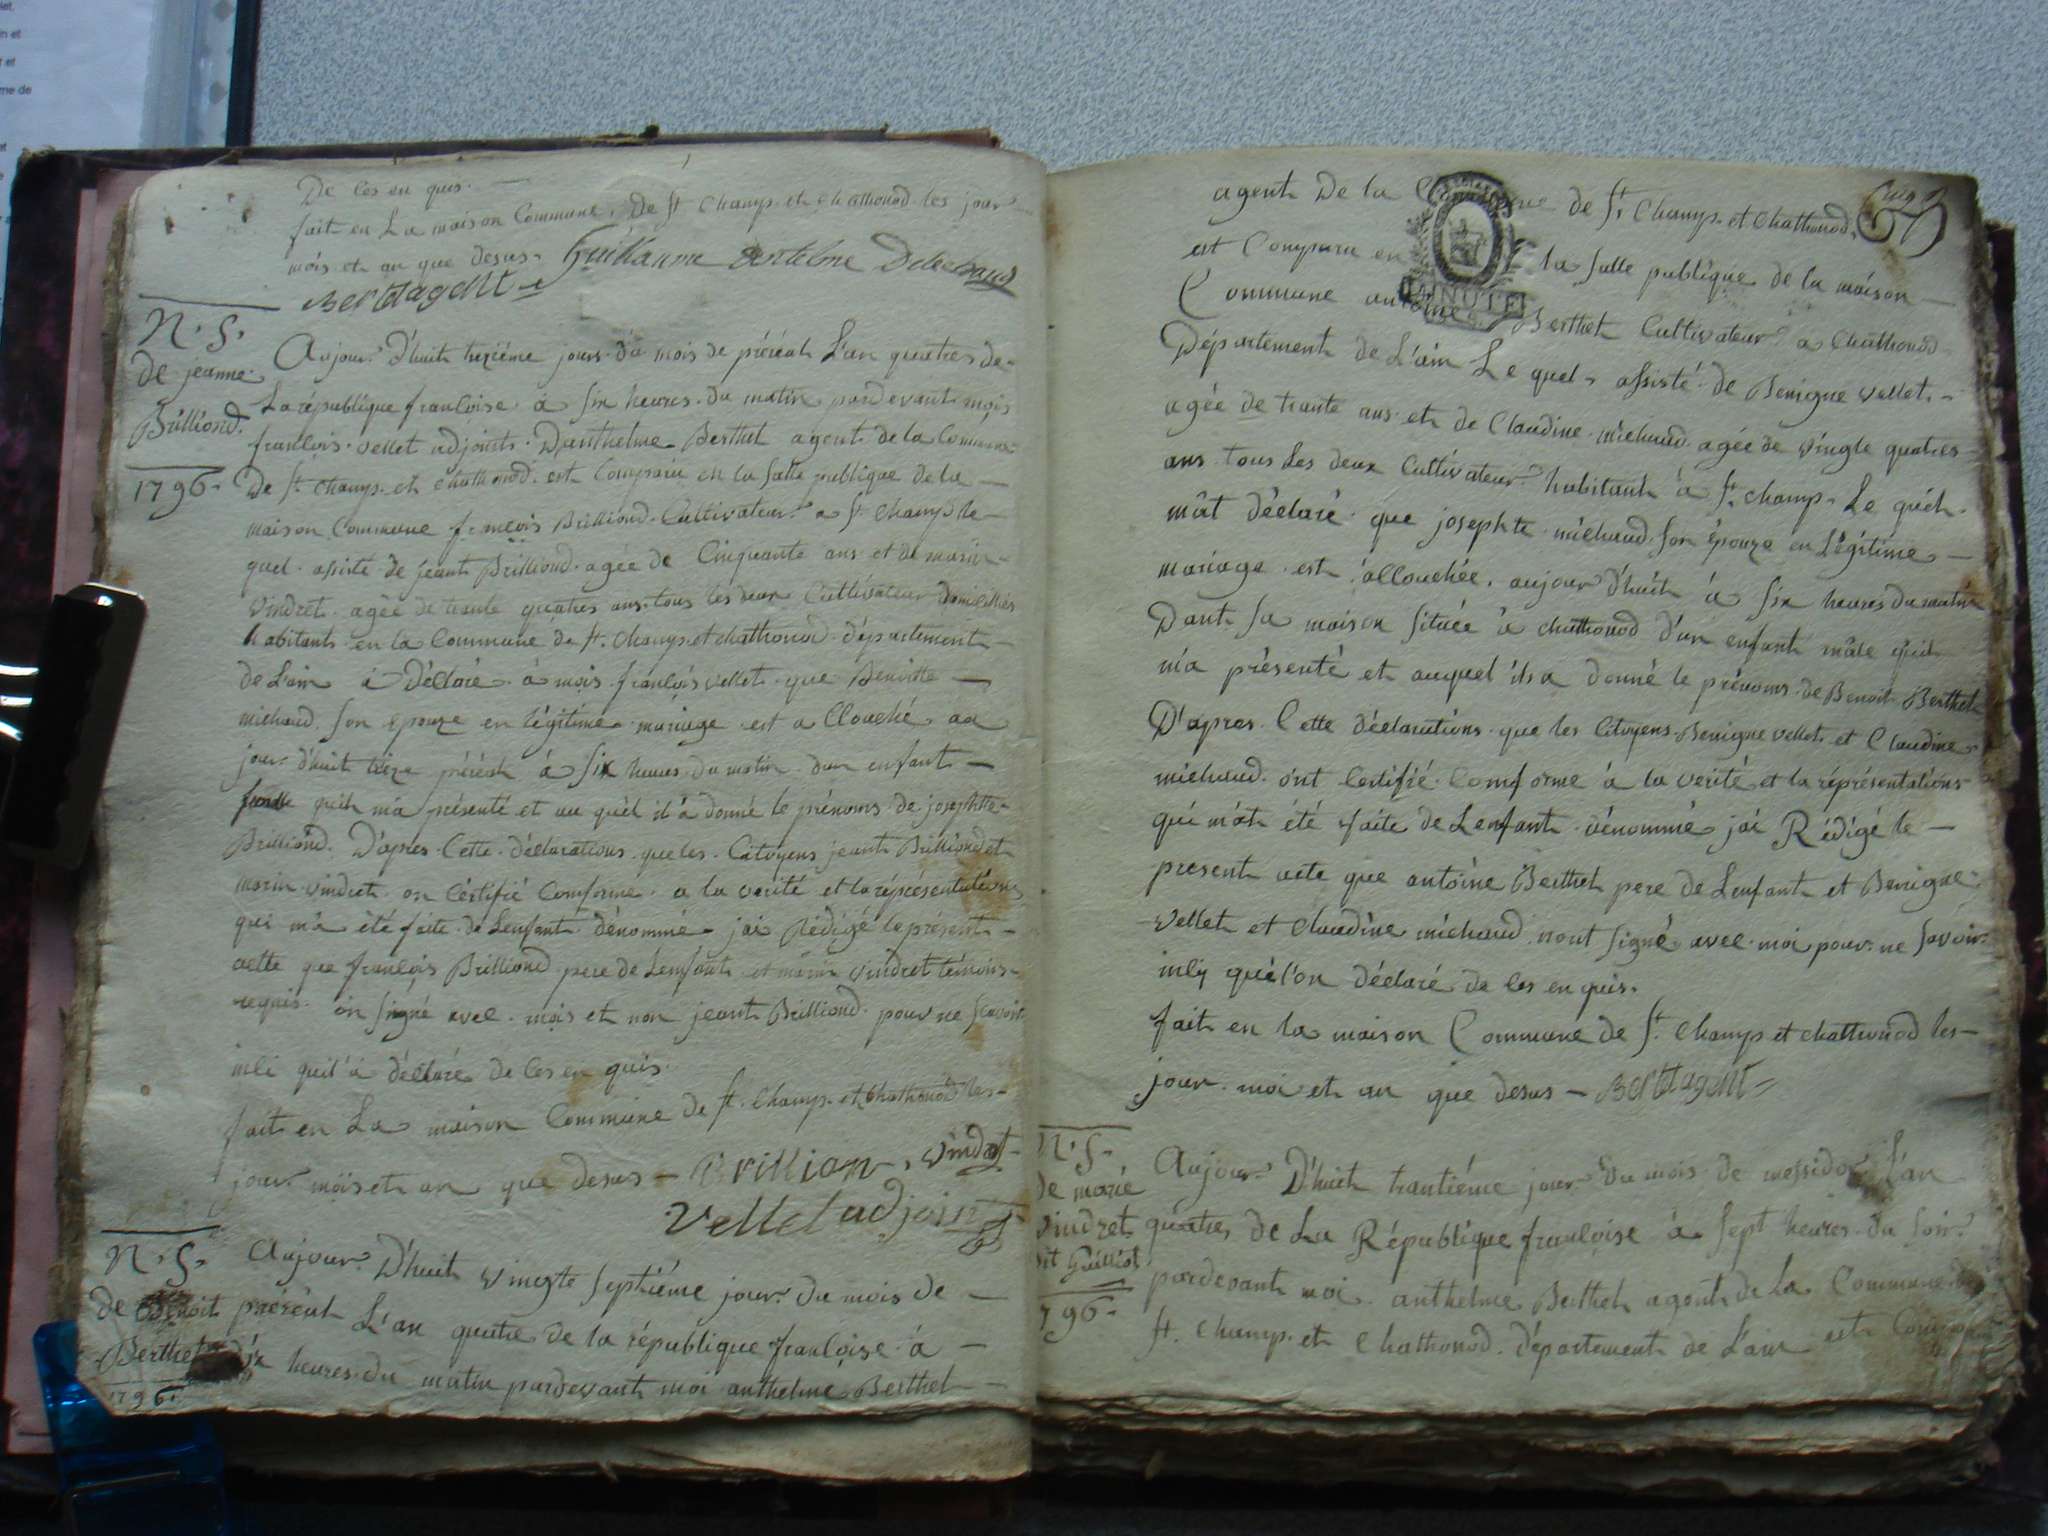 De ces en quis.
fait en La maison Commune De St Champ et Chathonod les jour
mois et an que desus. Guillaume
Bertagent
N. S.
de jeanne
Brilliond.
1796.
Aujour D'huit trezième jours du mois de préréal L'an quatres de
La république francloise à six heures du matin pardevant mois
franclois vellet adjoint D'anthelme Berthet agent de la Commune
De St. Champ et Chathonod est Comparu en la salle publique de la
maison Commune francois Brilliond Cultivateur a St Champ le
quel assisté de jeant Brilliond agée de Cinquante ans et de marin
vindret agée de trante quatres ans tous les deux Cultivateur domiciliés
habitants en la Commune de St. Champ et chathonod département
de L'ain à Déclaré à mois francloisvellet que Benoitte
michaud son epouze en légitime mariage est a Clouché au
jour d'huit treze préréal à six heures du matin dun enfant
femelle quil m'a présenté et au quel il à donné le prénoms de josephtte
Brilliond. D'apres Cette déclarations que les Citoyens jeant Brilliond et
marin vindret on Cértifié Comforme a la verité et la répréséntations
qui m'a été faite de Lenfant dénommé jai Rédigé le présent
actte que franclois Brilliond pere de Lenfant et marin vindret témoins
requis on signé avec mois et non jeant Brilliond pour ne scavoir
inli quil à déclaré de ces en quis.
fait en La maison Commune de St. Champ et chathonod les
jour mois et an que desus - Brillion, vindret
Vellet adjoint
N. S.
de Benoit
Berthet
1796.
Aujour D'huit vingte septiéme jour du mois de
préréal L'an quatre de la république francloise à
dix heures du matin pardevant moi anthelme Berthet
agent De la Commune de St Champ et Chathonod.
est Comparu en la salle publique de la maison
MINUTE
Commune antoine Berthet Cultivateur a Chathonod
Département de L'ain Le quel assisté de Benigne vellet
agée de trante ans et de Claudine michaud agée de vingte quatres
ans tous Les deux Cultivateur habitant à St. champ Le quel
m'at déclaré que josephte michaud son épouze en Légitime
mariage est allouchée aujour D'huit à six heures du matin
Dant sa maison située à chathonod d'un enfant mâle quil
m'a présenté et auquel ils a donné le prénoms de Benoit Berthet
D'apres Cette déclarations que les Citoyens Benigne vellet et Claudine
michaud ont Certifié Comforme à la verité et la répréséntations
qui m'at été faite de Lenfant dénommé jai Rédigé le
present acte que antoine Berthet pere de Lenfant et Benigne
vellet et Claudine michaud nont signé avec moi pour ne savoir
inliy qué l'on déclaré de ces en quis.
fait en la maison Commune de St Champ et chathonod les
jour moi et an que desus - Bertagent
N. S.
de marie
vindret
dit Guilliot
1796.
Aujour D'huit trantiéme jour du mois de messidor L'an
quatres de La République francloise à sept heures du soir
pardevant moi anthelme Berthet agent de La Commune de
St. Champ et Chathonod département de L'ain est Comparu